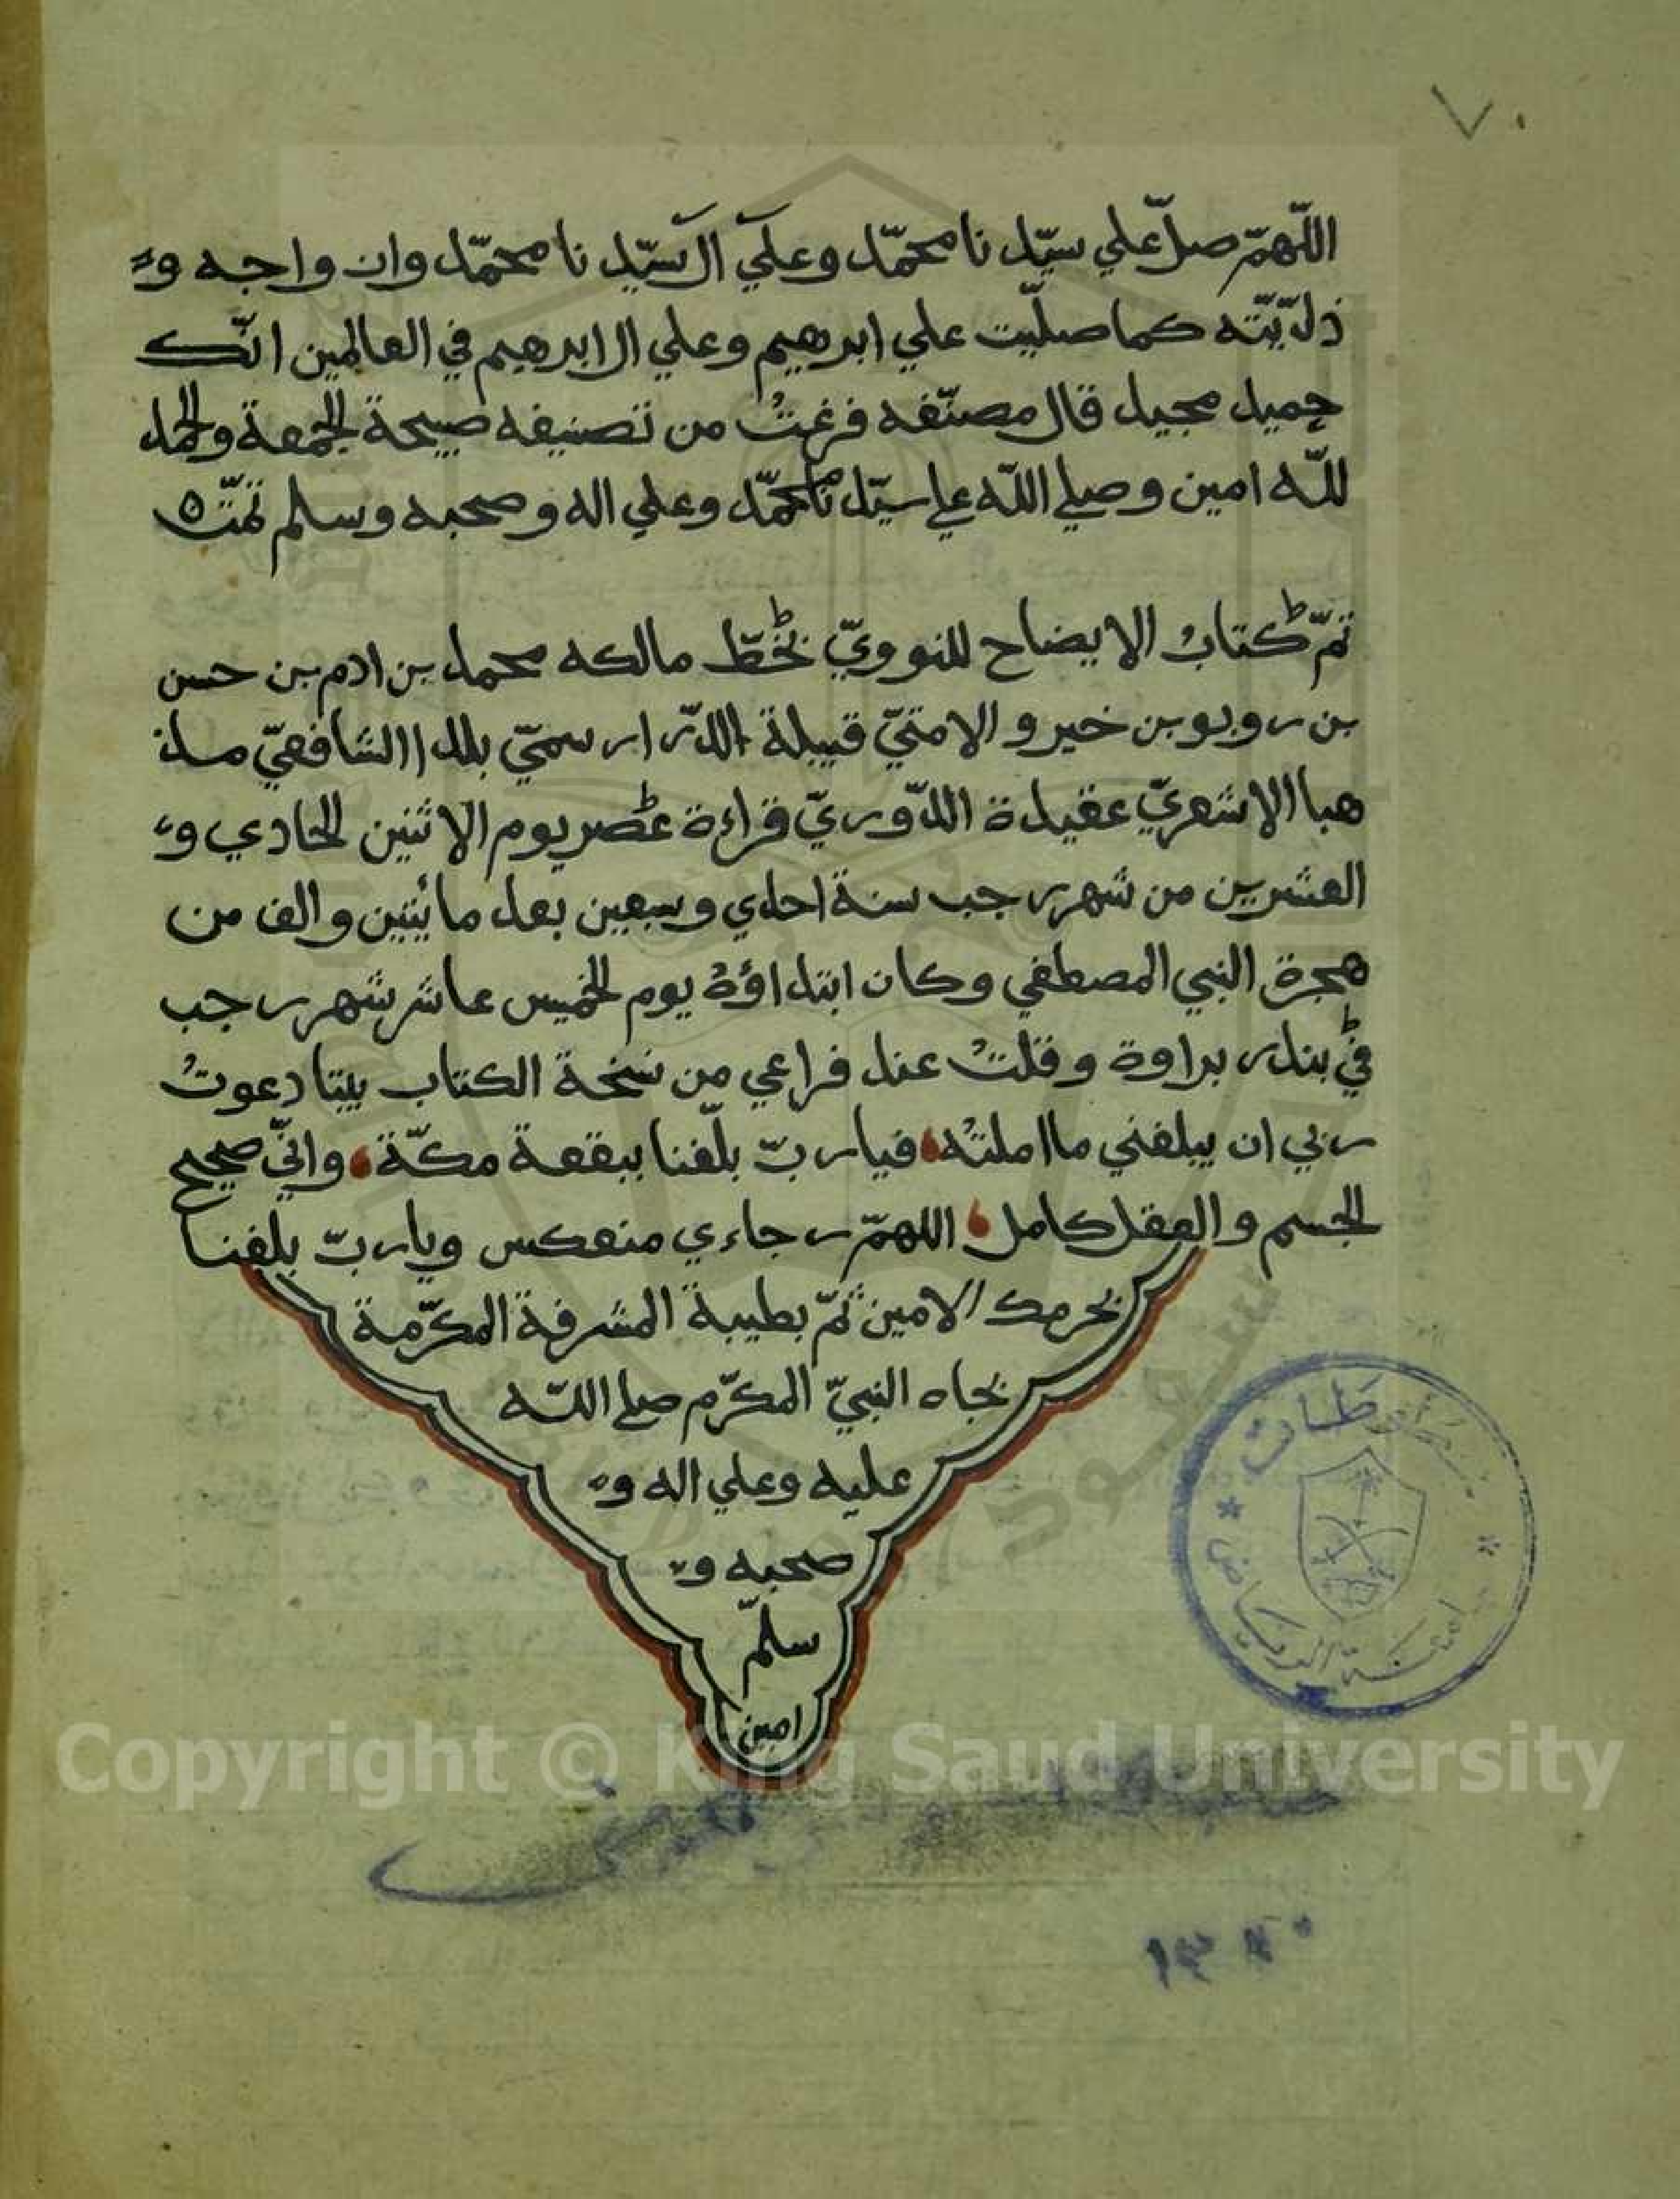 ٧٠
اللّهمّ صلّ علي سيّد نا محمّد وعلي آل سيّد نا محمّد وازواجه و
ذرّيّته كما صلّيت علي ابرهيم وعلي ال ابرهيم في العالمين انّك
حميد مجيد قال مصنّفه فرغتُ من تصنيفه صبيحة الجمعة والحمد
للّه امين وصلي اللّه علي سيّد نا محمّد وعلي اله وصحبه وسلم تمّت ٥
تمّ كتابُ الايضاح للنوويّ بخطّ مالكه محمد بن ادم بن حسن
بن روبو بن خيرو الامتيّ قبيلة الدّرارسميّ بلدا الشافعيّ مذ
هبا الاشعريّ عقيدة الدّوريّ قراءة عصر يوم الاثنين الحادي و
العشرين من شهر رجب سنة احدي وسبعين بعد مائتين والف من
هجرة النبي المصطفي وكان ابتداؤهُ يوم الخميس عاشر شهر رجب
في بندر براوة وقلتُ عند فراغي من نسخة الكتاب بيتا دعوتُ
ربي ان يبلغني ما املتهُ فيارب بلّغنا ببقعة مكّة وانّي صحيح
الجسم والعقل كامل اللهمّ رجاءي منعكس ويارب بلغنا
بحرمك الامين ثمّ بطيبة المشرفة المكرّمة
بجاه النبيّ المكرّم صلي اللّه
عليه وعلي اله و
صحبه و
سلمّ
امين
Copyright © King Saud University